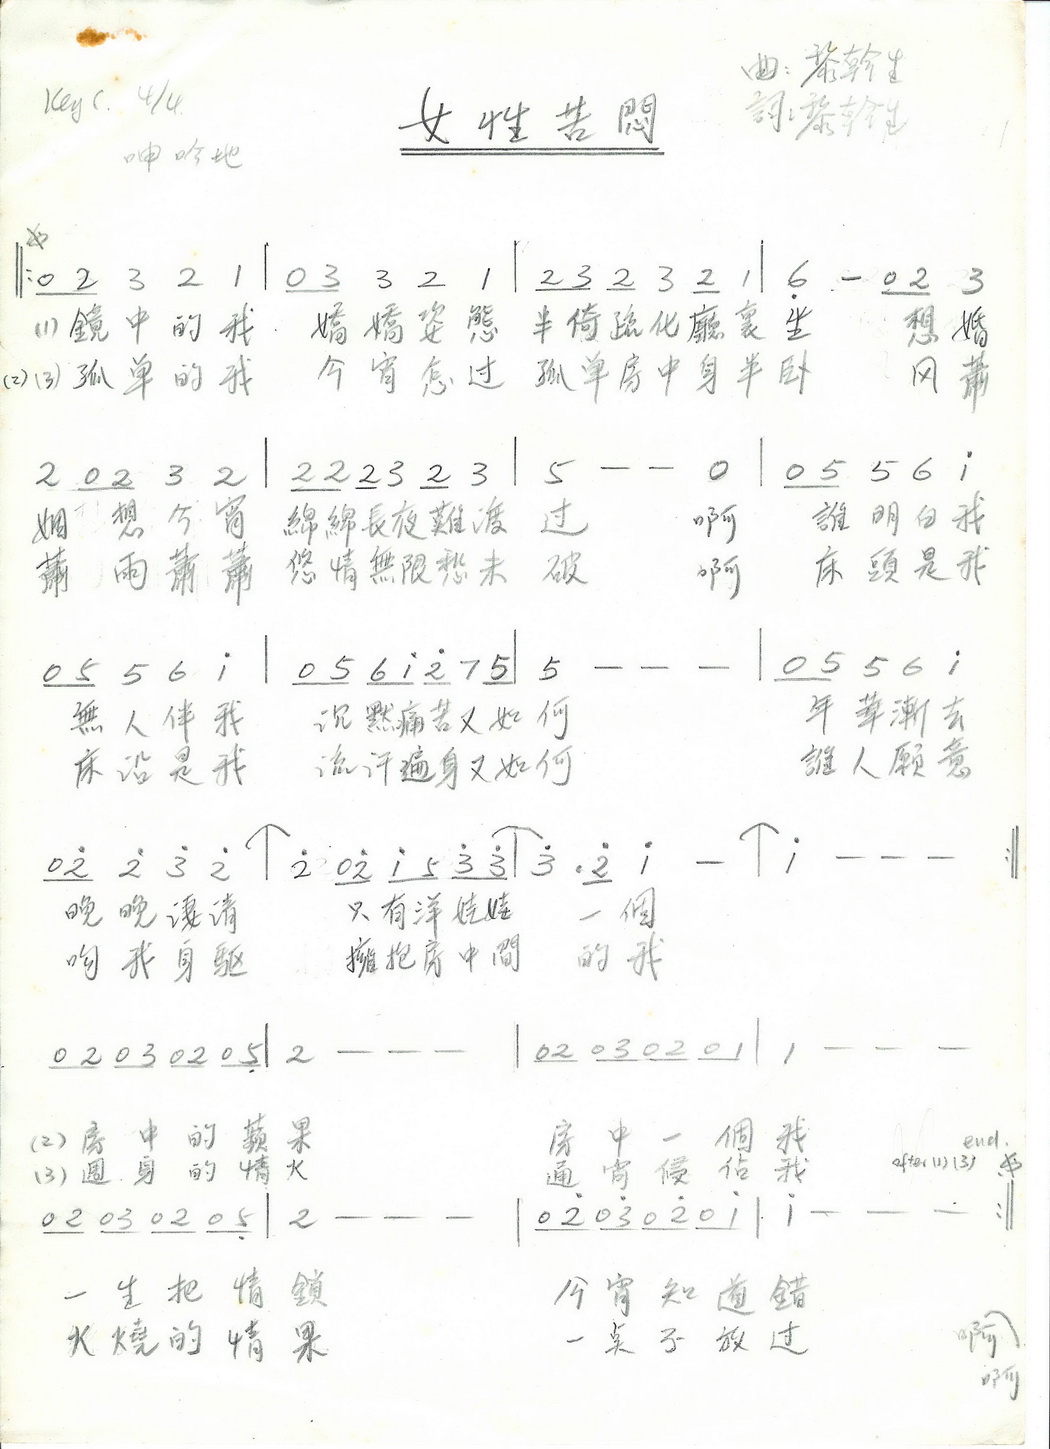 曲：黎幹生
Key C. 4/4
女性苦悶
詞：黎幹生
呻吟地
‖: 0 2 3 2 1 | 0 3 3 2 1 | 2 3 2 3 2 1 | 6̣ — 0 2 3
(1) 鏡中的我 嬌嬌姿態 半倚梳化廳裏坐 想婚
(2)(3) 孤单的我 今宵怎过 孤单房中身半卧 风蕭
2 0 2 3 2 | 2 2 2 3 2 3 | 5 — — 0 | 0 5 5 6 i
姻 想今宵 綿綿長夜難渡过 啊 誰明白我
蕭 雨蕭蕭 悠情無限愁未破 啊 床頭是我
0 5 5 6 i | 0 5 6 i 2̇ 7 5 | 5 — — — | 0 5 5 6 i
無人伴我 沉默痛苦又如何 年華漸去
床沿是我 流汗遍身又如何 誰人願意
0 2̇ 2̇ 3̇ 2̇ 2̇ 0 2̇ i 5 3̇ 3̇ | 3̇ . 2̇ i — i — — — :‖
晚晚淒清 只有洋娃娃 一個
吻我身驱 擁抱房中間 的我
0 2 0 3 0 2 0 5̣ | 2 — — — | 0 2 0 3 0 2 0 1 | 1 — — —
(2) 房中的蘋果 房中一個我
end.
(3) 週身的情火 通宵侵佔我 after (1) (3)
0 2 0 3 0 2 0 5̣ | 2 — — — | 0 2̇ 0 3̇ 0 2̇ 0 i | i — — — :‖
一生把情鎖 今宵知道錯
火燒的情果 一点不放过 啊
啊